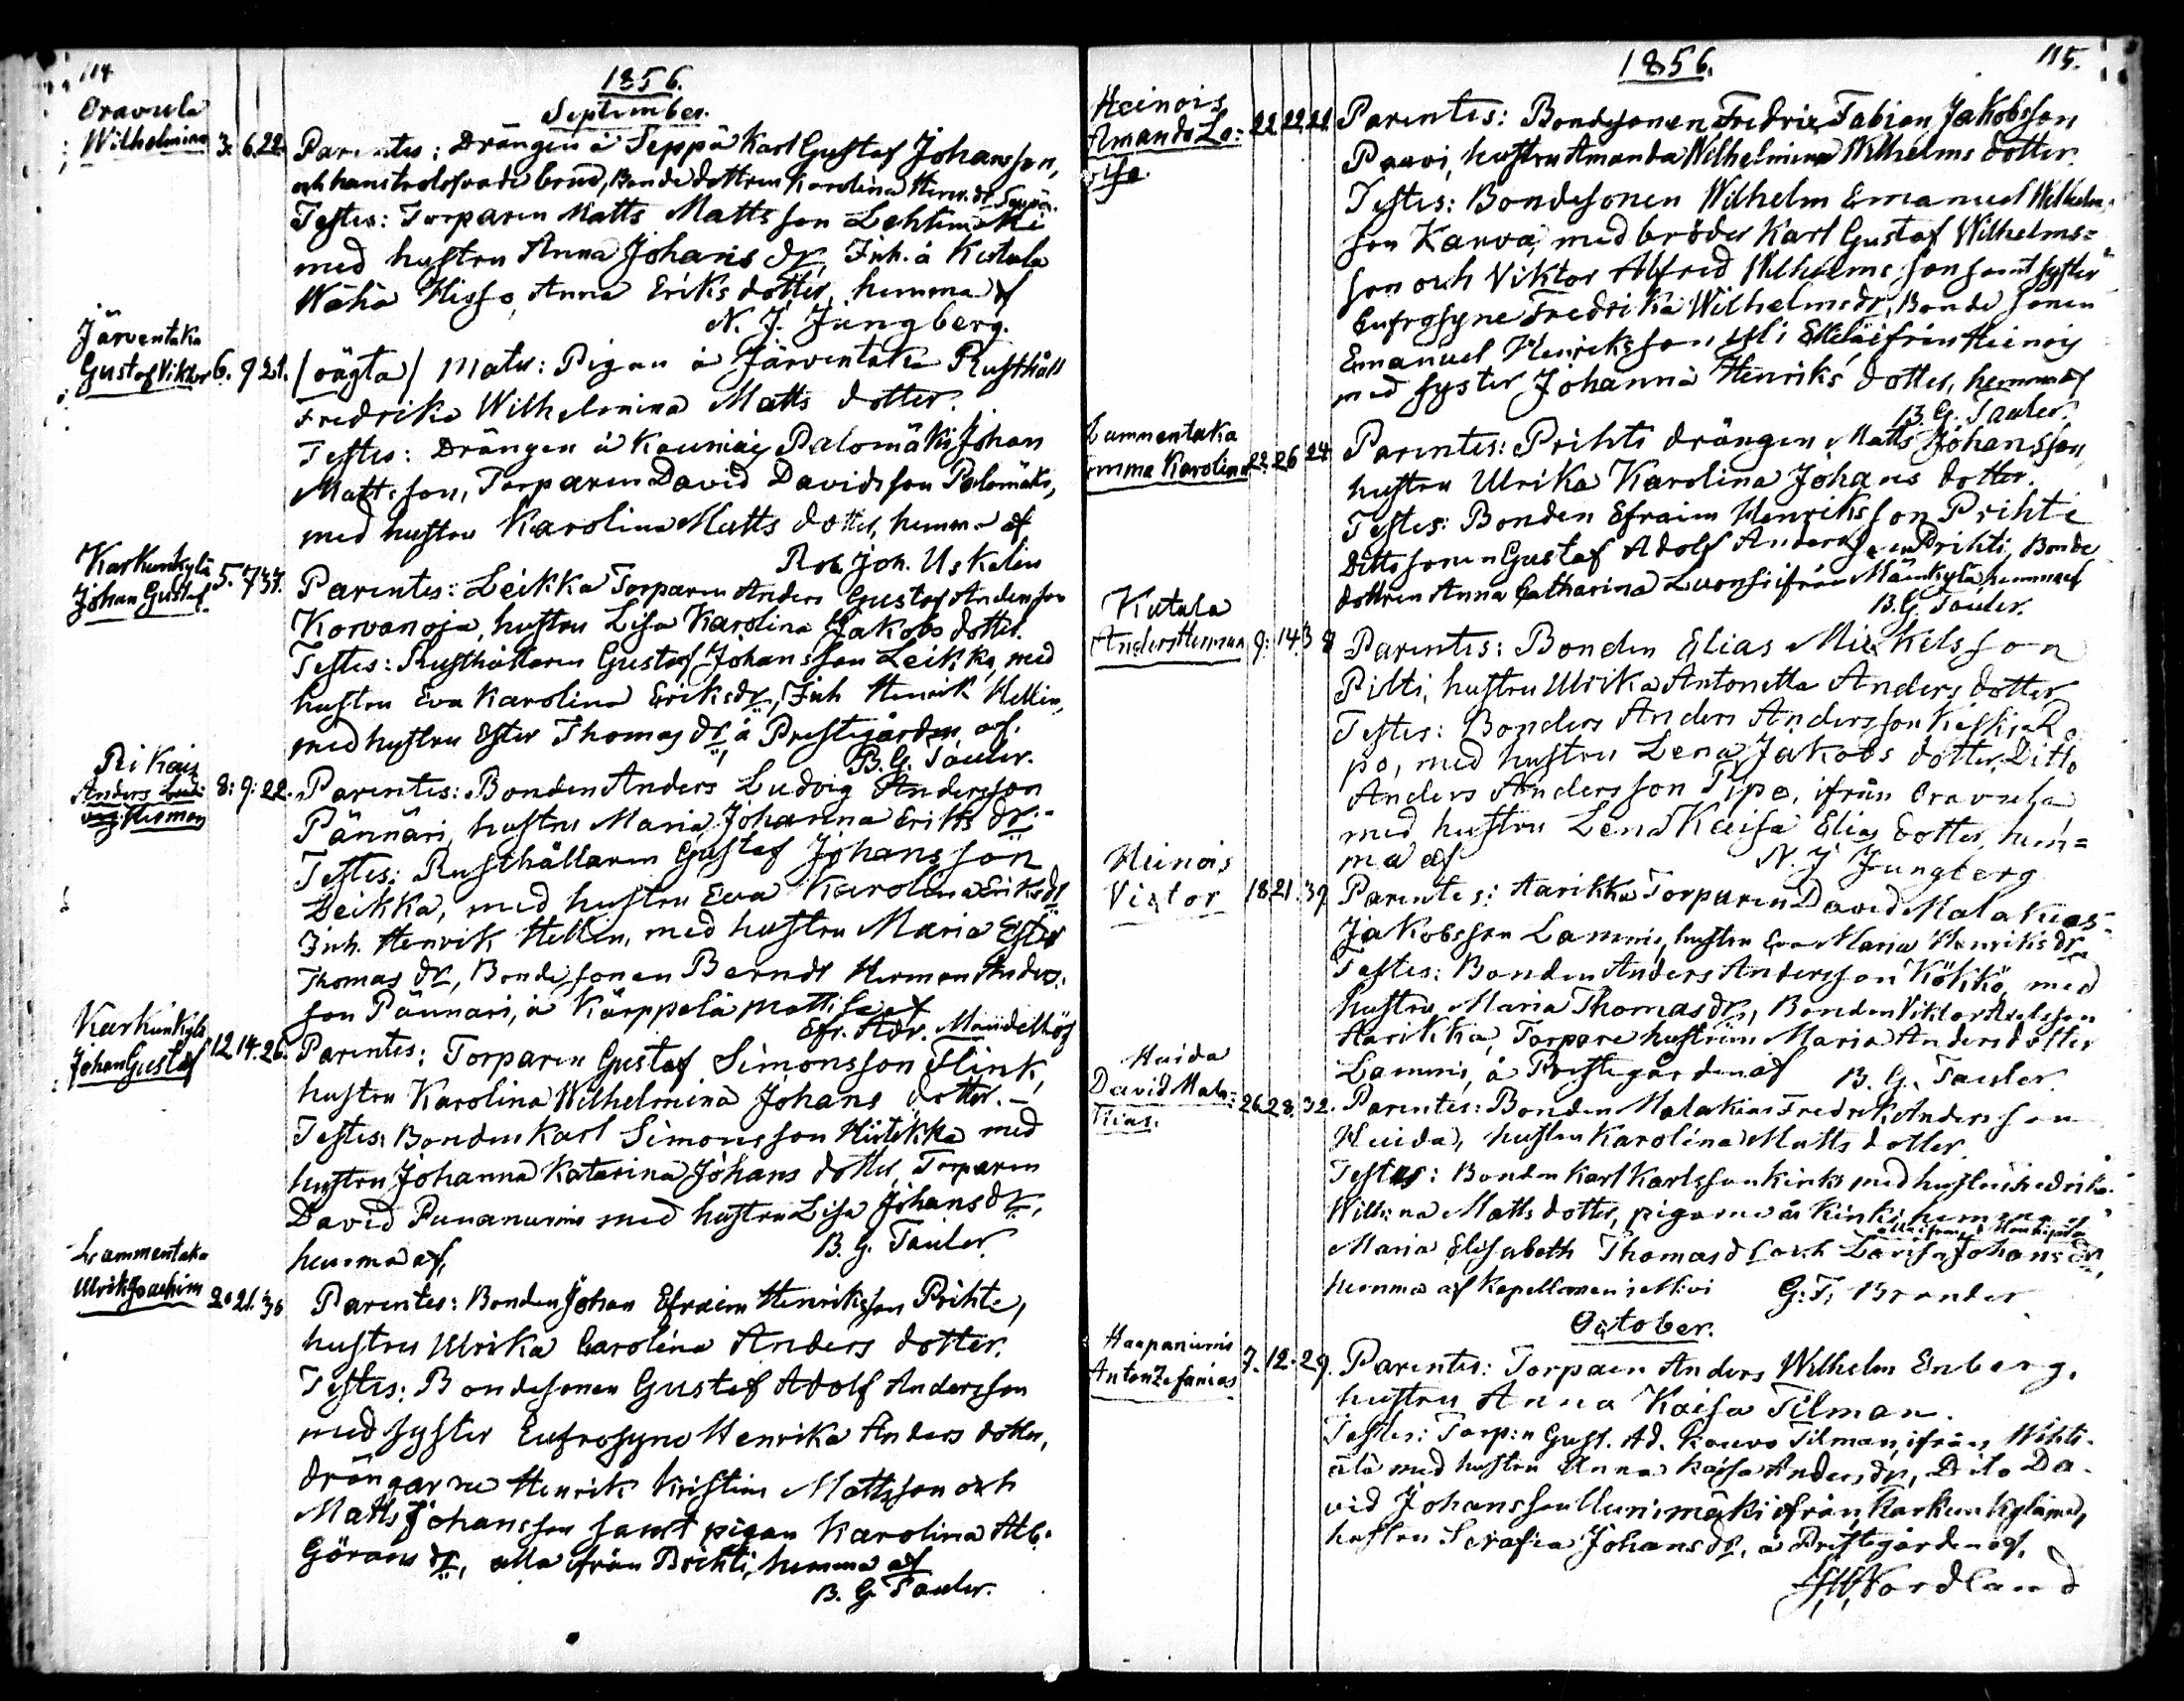 114
1856.
September.
Oravula
Wilhelmina 3. 6. 22. Parentes: Drängen å Seppä Karl Gustaf Johansson,
och hans trolofvade brud, Bondedottren Karolina Henr. dr Seppä.
Testes: Torparen Matts Mattsson Lehtimäki
med hustru Anna Johans dr, Inh. å Kutala
Wähä Hisso, Anna Eriks dotter, hemma af
N. J. Jungberg.
Järventaka
Gustaf Viktor 6. 9 21. (oägta) Mater: Pigan å Järventaka Rusthåll
Fredrika Wilhelmina Matts dotter.
Testes: Drängen å Kauniais Palomäki Johan
Mattsson, Torparen David Davidsson Palomäki,
med hustru Karolina Matts dotter, hemma af
Rob. Joh. Uskelin
Karkunkylä
Johan Gustaf 5. 7 37. Parentes: Leikka Torparen Anders Gustaf Andersson
Korvanoja, hustru Lisa Karolina Jakobs dotter.
Testes: Rusthållaren Gustaf Johansson Leikka, med
hustru Eva Karolina Eriksdr, Inh Henrik Hellen,
med hustru Ester Thomas dr, å Prestgården af.
B. G. Tauler.
Rikais
Anders Lud:
vig Herman 8: 9: 22. Parentes: Bonden Anders Ludvig Andersson
Pännäri, hustru Maria Johanna Eriks dr.
Testes: Rusthållaren Gustaf Johansson
Leikka, med hustru Eva Karolina Eriksdr
Inh. Henrik Hellen, med hustru Maria Ester
Thomas dr, Bondesonen Berndt Herman Anders-
son Pännäri, å Kärppelä Mattila af
Efr. Adr. Mandellöf
Karkunkylä
Johan Gustaf 12 14. 26. Parentes: Torparen Gustaf Simonsson Flink,
hustru Karolina Wilhelmina Johans dotter.
Testes: Bonden Karl Simonsson Hiitikka med
hustru Johanna Katarina Johans dotter, Torparen
David Punanurmi med hustru Lisa Johansdr,
hemma af,
B. G. Tauler.
Lammentaka
Ulrik Joachim 20 21. 38 Parentes: Bonden Johan Efraim Henriksson Prihti,
hustru Ulrika Carolina Anders dotter.
Testes: Bondesonen Gustaf Adolf Andersson
med syster Eufrosyne Henrika Anders dotter,
drängarne Henrik Kristian Mattsson och
Matts Johansson samt pigan Karolina Alb.
Görans dr, alla ifrån Prihti, hemma af
B. G. Tauler.
1856.
115.
Heinois
Amanda Lo:
visa. 22 22 21. Parentes: Bondesonen Fredrix Fabian Jakobsson
Paavi, hustru Amanda Wilhelmina Wilhelms dotter.
Testes: Bondesonen Wilhelm Emanuel Wilhelms-
son Karva, med bröder Karl Gustaf Wilhelms=
son och Viktor Alfred Wilhelmsson samt syster
Eufrosyne Fredrika Wilhelmsdr, Bondesonen
Emanuel Henriksson Esli Ekelä ifrån Heinois
med syster Johanna Henriks dotter, hemma af
B. G. Tauler.
Lammentaka
Emma Karolina 22. 26 24 Parentes: Prihti drängen Matts Johansson,
hustru Ulrika Karolina Johans dotter.
Testes: Bonden Efraim Henriksson Prihti
Ditto sonen Gustaf Adolf Andersson Prihti, Bonde
dottren Anna Catharina Luonsi ifrån Märikylä hemma af
B. G. Tauler.
Kutala
Anders Herman 9: 14. 38 Parentes: Bonden Elias Mickelsson
Pilti, hustru Ulrika Antonetta Anders dotter
Testes: Bonden Anders Andersson Keskis Ro
po, med hustru Lena Jakobs dotter, Ditto
Anders Andersson Pipo, ifrån Oravula
med hustru Lena Kaisa Elias dotter, hem=
ma af
N. J Jungberg
Heinois
Victor 18 21. 39 Parentes: Aarikka Torparen David Malakias
Jakobsson Lammi, hustru Eva Maria Henriks dr
Testes: Bonden Anders Andersson Kökkö, med
hustru Maria Thomasdr, Bonden Viktor Axelsson
Aarikka, Torpare hustrun Maria Andersdotter
Lammi, å Prestegården af
B. G. Tauler.
Huida
David Mala:
kias. 26 28. 32. Parentes: Bonden Malakias Fredrik Andersson
Huida, hustru Karolina Matts dotter.
Testes: Bonden Karl Karlsson Kinki med hustru Fredrika
Wilh:na Matts dotter, pigorne å Kinki
Maria Elisabeth Thomasdr och Lovisa Johans dr,
hemma af Kapellanen i Mivi
G. F. Brander
October.
Haapaniemi
Anton Zefanias 7. 12. 29. Parentes: Torparen Anders Wilhelm Enberg,
hustru Anna Kaisa Tilman.
Testes: Torp:n Gust. Ad. Kouvo Tilman, ifrån Wihti-
älä med hustru Anna Kaisa Andersdr, Dito Da-
vid Johansson Uunimäki ifrån Karkunkylä med
hustru Serafia Johansdr, å Prestgården af,
Nordlund